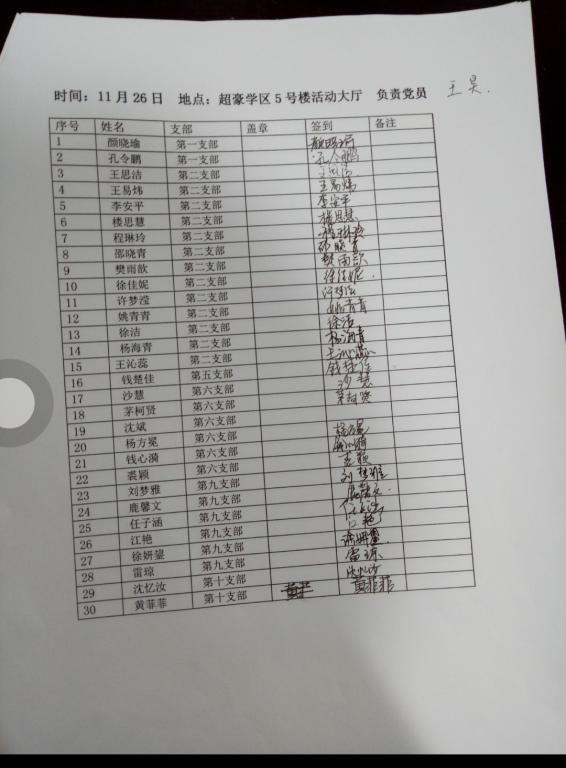 时间：11月26日 地点：超豪学区5号楼活动大厅 负责党员 王昊.
序号 姓名 支部 盖章 签到 备注
1 颜晓瑜 第一支部
2 孔令鹏 第一支部 孔令鹏
3 王思洁 第二支部 王思洁
4 王易炜 第二支部 王易炜
5 李安平 第二支部 李安平
6 楼思慧 第二支部 楼思慧
7 程琳玲 第二支部 程琳玲
8 邵晓青 第二支部 邵晓青
9 樊雨歆 第二支部 樊雨歆
10 徐佳妮 第二支部 徐佳妮.
11 许梦滢 第二支部
12 姚青青 第二支部 姚青青
13 徐洁 第二支部 徐洁
14 杨海青 第二支部 杨海青
15 王沁蕊 第二支部 王沁蕊
16 钱楚佳 第五支部 钱楚佳
17 沙慧 第六支部 沙慧
18 茅柯贤 第六支部 茅柯贤
19 沈斌 第六支部
20 杨方冕 第六支部 杨方冕
21 钱心漪 第六支部
22 裘颖 第六支部 裘颖
23 刘梦雅 第九支部 刘梦雅
24 鹿馨文 第九支部 鹿馨文.
25 任子涵 第九支部 任子涵
26 江艳 第九支部 江艳
27 徐妍鋆 第九支部 徐妍鋆
28 雷琼 第九支部 雷琼
29 沈忆汝 第十支部 沈忆汝
30 黄菲菲 第十支部 黄菲菲